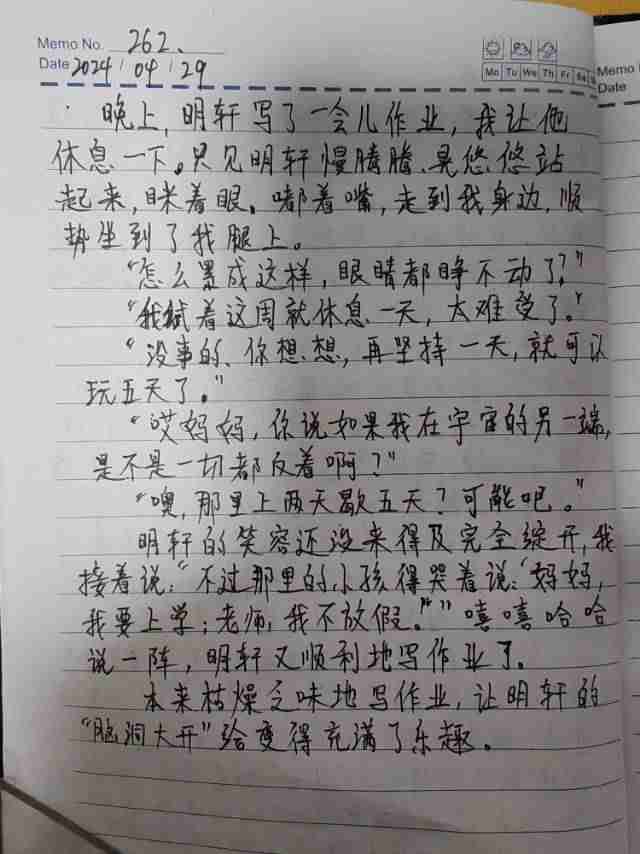 Memo No. 262.
Date 2024 / 04 / 29
Mo Tu We Th Fr Sa
Memo
Date
晚上,明轩写了一会儿作业,我让他
休息一下。只见明轩慢腾腾、晃悠悠站
起来,眯着眼,嘟着嘴,走到我身边,顺
势坐到了我腿上。
“怎么累成这样,眼睛都睁不动了?”
“我试着这周就休息一天,太难受了。”
“没事的、你想想,再坚持一天,就可以
玩五天了。”
“哎妈妈,你说如果我在宇宙的另一端,
是不是一切都反着啊?”
“噢,那里上两天歇五天?可能吧。”
明轩的笑容还没来得及完全绽开,我
接着说:“不过那里的小孩得哭着说:‘妈妈,
我要上学;老师,我不放假。’”嘻嘻哈哈
说一阵,明轩又顺利地写作业了。
本来枯燥乏味地写作业,让明轩的
“脑洞大开”给变得充满了乐趣。